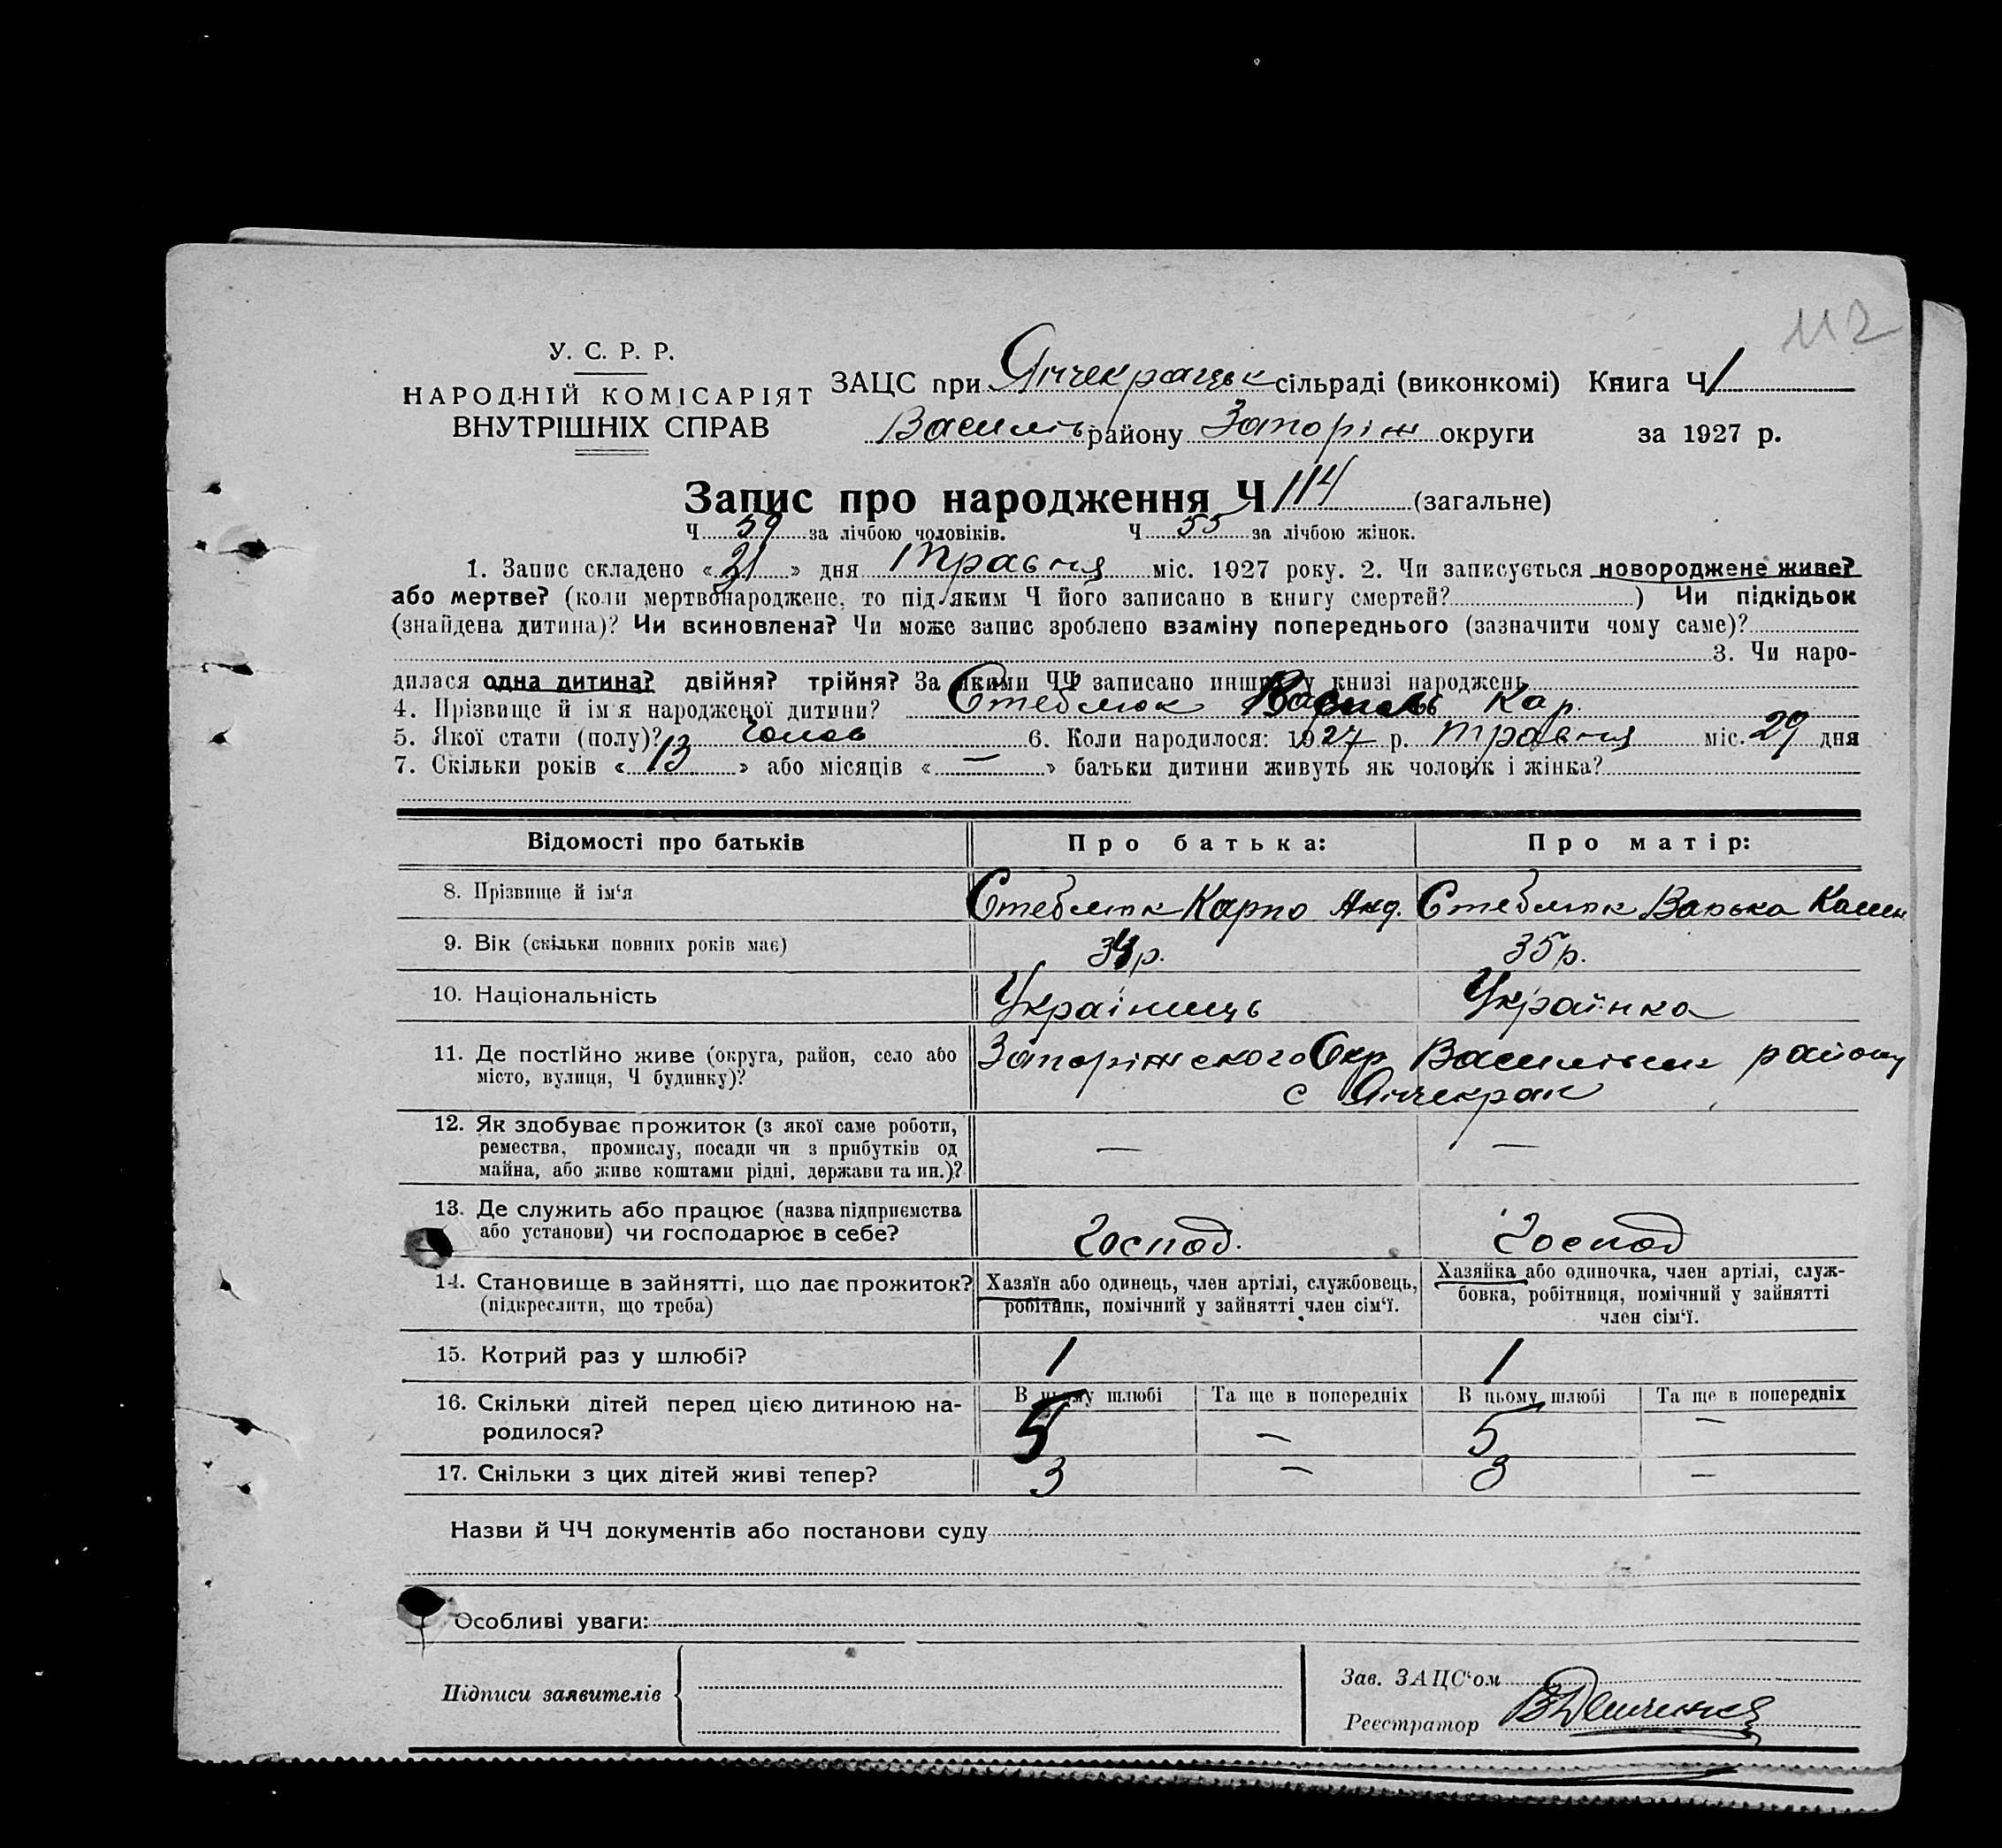 112
У. С. Р. Р.
НАРОДНІЙ КОМІСАРІЯТ
ВНУТРІШНІХ СПРАВ
ЗАЦС при Янчекрацьк сільраді (виконкомі) Книга Ч 1
Василів району Запоріж округи за 1927 р.
Запис про народження Ч 114 (загальне)
Ч 59 за лічбою чоловіків. Ч 55 за лічбою жінок.
1. Запис складено « 31 » дня Травня міс. 1927 року. 2. Чи записується новороджене живе?
або мертве? (коли мертвонароджене, то під яким Ч його записано в книгу смертей? ) Чи підкідьок
(знайдена дитина)? Чи всиновлена? Чи може запис зроблено взаміну попереднього (зазначити чому саме)?
3. Чи наро-
дилася одна дитина? двійня? трійня? За якими ЧЧ записано инших у книзі народжень
4. Прізвище й ім'я народженої дитини? Стеблюк Василь Кар.
5. Якої стати (полу)? Чолов 6. Коли народилося: 1927 р. Травня міс. 29 дня
7. Скільки років « 13 » або місяців « — » батьки дитини живуть як чоловік і жінка?
Відомості про батьків Про батька: Про матір:
8. Прізвище й ім'я Стеблюк Карпо Анд. Стеблюк Варька
9. Вік (скільки повних років має) р. 35 р.
10. Національність Українець Українка
11. Де постійно живе (округа, район, село або
місто, вулиця, Ч будинку)? Запоріжского Окр Васильівськ району
с Янчекрак
12. Як здобуває прожиток (з якої саме роботи,
ремества, промислу, посади чи з прибутків од
майна, або живе коштами рідні, держави та ин.)? — —
13. Де служить або працює (назва підприємства
або установи) чи господарює в себе? Господ. Господ
14. Становище в зайнятті, що дає прожиток?
(підкреслити, що треба)
Хазяїн або одинець, член артілі, службовець,
робітник, помічний у зайнятті член сім'ї.
Хазяйка або одиночка, член артілі, служ-
бовка, робітниця, помічний у зайнятті
член сім'ї.
15. Котрий раз у шлюбі? 1 1
16. Скільки дітей перед цією дитиною на-
родилося?
В цьому шлюбі Та ще в попередніх В цьому шлюбі Та ще в попередніх
5 — 5 —
17. Скільки з цих дітей живі тепер? 3 — 3 —
Назви й ЧЧ документів або постанови суду
Особливі уваги:
Підписи заявителів
Зав. ЗАЦС'ом
Реєстратор